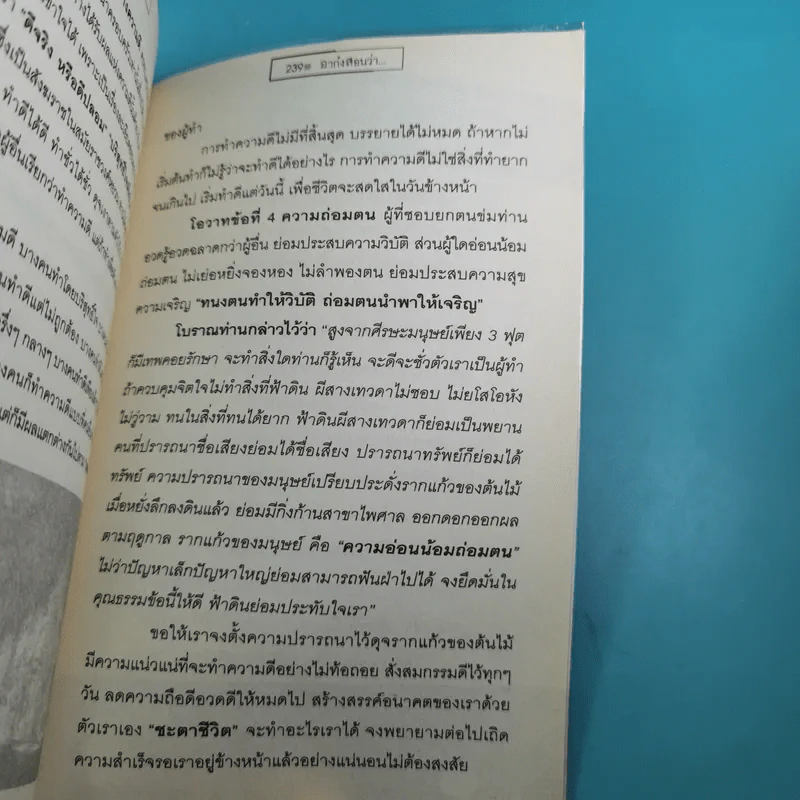 239 อาก๋งสอนว่า...
ของผู้ทำ
การทำความดีไม่มีที่สิ้นสุด บรรยายได้ไม่หมด ถ้าหากไม่
เริ่มต้นทำก็ไม่รู้ว่าจะทำดีได้อย่างไร การทำความดีไม่ใช่สิ่งที่ทำยาก
จนเกินไป เริ่มทำดีแต่วันนี้ เพื่อชีวิตจะสดใสในวันข้างหน้า
โอวาทข้อที่ 4 ความถ่อมตน ผู้ที่ชอบยกตนข่มท่าน
อวดรู้อวดฉลาดกว่าผู้อื่น ย่อมประสบความวิบัติ ส่วนผู้ใดอ่อนน้อม
ถ่อมตน ไม่เย่อหยิ่งจองหอง ไม่ลำพองตน ย่อมประสบความสุข
ความเจริญ "ทนงตนทำให้วิบัติ ถ่อมตนนำพาให้เจริญ"
โบราณท่านกล่าวไว้ว่า "สูงจากศีรษะมนุษย์เพียง 3 ฟุต
ก็มีเทพคอยรักษา จะทำสิ่งใดท่านก็รู้เห็น จะดีจะชั่วตัวเราเป็นผู้ทำ
ถ้าควบคุมจิตใจไม่ทำสิ่งที่ฟ้าดิน ผีสางเทวดาไม่ชอบ ไม่ยโสโอหัง
ไม่วู่วาม ทนในสิ่งที่ทนได้ยาก ฟ้าดินผีสางเทวดาก็ย่อมเป็นพยาน
คนที่ปรารถนาชื่อเสียงย่อมได้ชื่อเสียง ปรารถนาทรัพย์ก็ย่อมได้
ทรัพย์ ความปรารถนาของมนุษย์เปรียบประดั่งรากแก้วของต้นไม้
เมื่อหยั่งลึกลงดินแล้ว ย่อมมีกิ่งก้านสาขาไพศาล ออกดอกออกผล
ตามฤดูกาล รากแก้วของมนุษย์ คือ "ความอ่อนน้อมถ่อมตน"
ไม่ว่าปัญหาเล็กปัญหาใหญ่ย่อมสามารถฟันฝ่าไปได้ จงยึดมั่นใน
คุณธรรมข้อนี้ให้ดี ฟ้าดินย่อมประทับใจเรา"
ขอให้เราจงตั้งความปรารถนาไว้ดุจรากแก้วของต้นไม้
มีความแน่วแน่ที่จะทำความดีอย่างไม่ท้อถอย สั่งสมกรรมดีไว้ทุกๆ
วัน ลดความถือดีอวดดีให้หมดไป สร้างสรรค์อนาคตของเราด้วย
ตัวเราเอง "ชะตาชีวิต" จะทำอะไรเราได้ จงพยายามต่อไปเถิด
ความสำเร็จรอเราอยู่ข้างหน้าแล้วอย่างแน่นอนไม่ต้องสงสัย